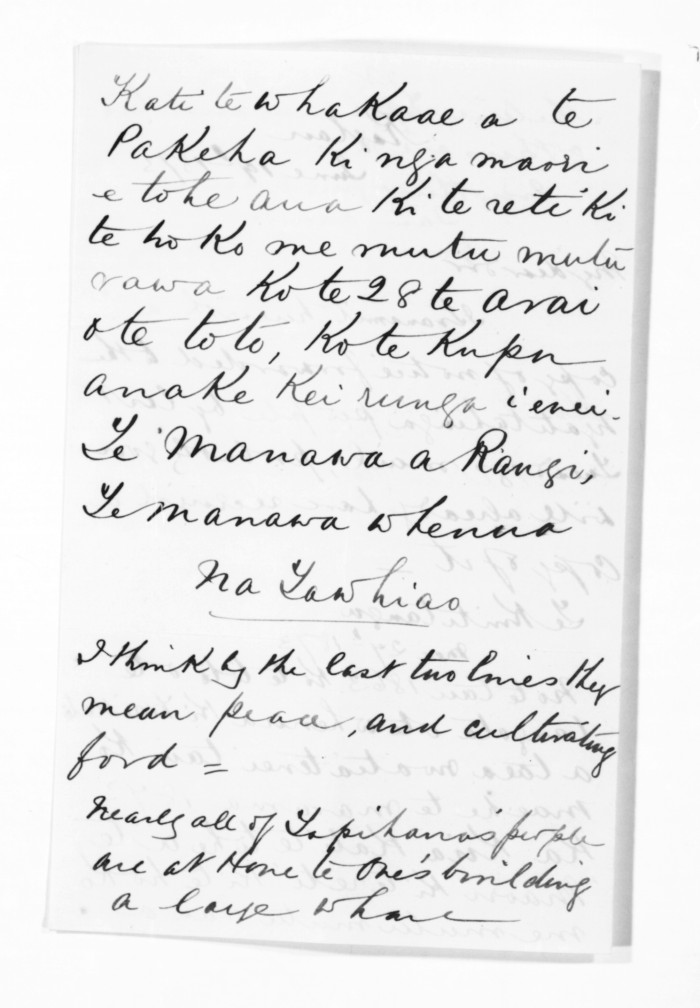 Kati te whakaae a te
Pakeha Ki nga maori
e tohe ana Ki te reti Ki
te hoko me mutu mutu
rawa Ko te 28 te arai
o te toto, Ko te Kupu
anake Kei runga i enei.
Te Manawa a Rangi,
Te manawa whenua
Na Tawhiao
I think by the last two lines they
mean peace, and cultivating
food =
Nearly all of Tapihana's people
are at Hone te One's building
a large whare